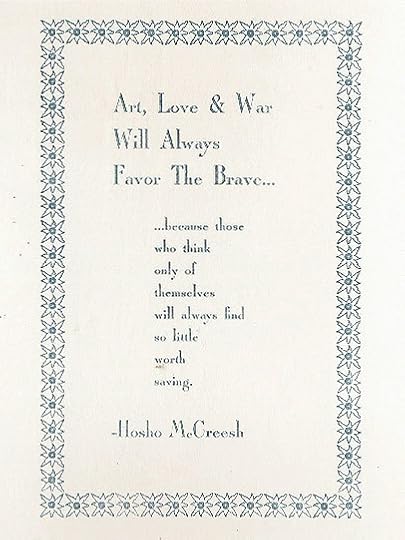 Art, Love & War
Will Always
Favor The Brave...
...because those
who think
only of
themselves
will always find
so little
worth
saving.
-Hosho McCreesh